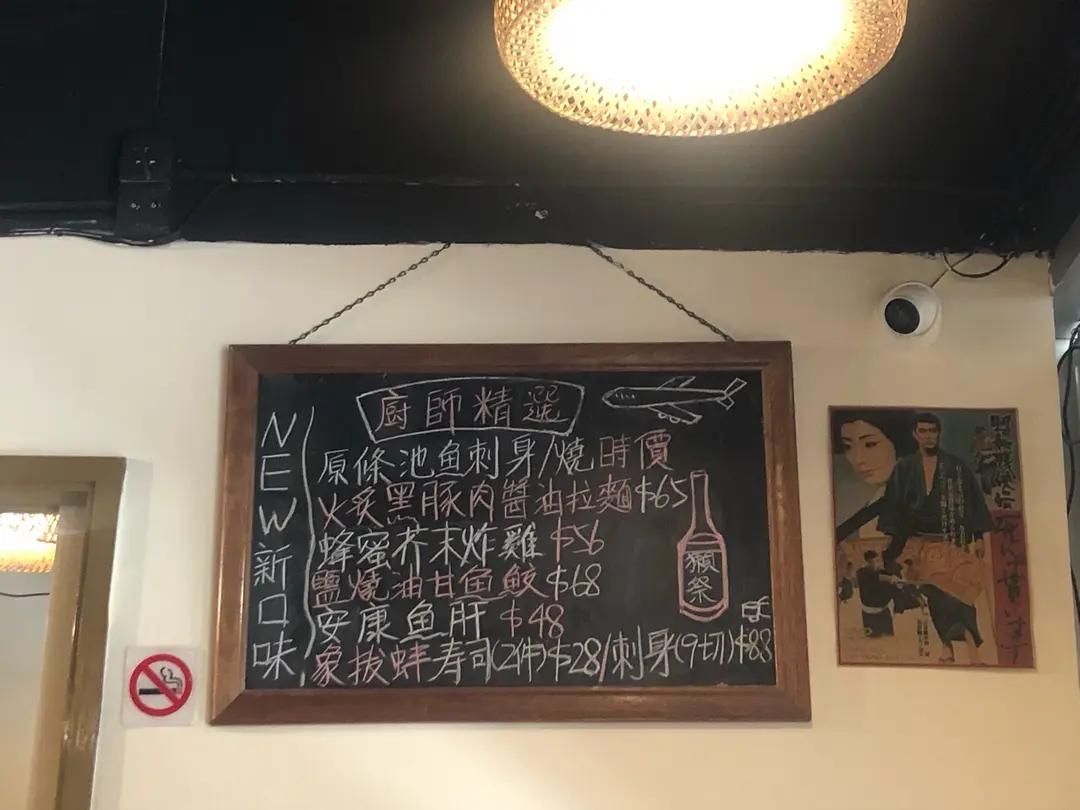 廚師精選
NEW新口味
原條池鱼刺身/燒時價
火炙黑豚肉醬油拉麵$65
蜂蜜芥末炸雞$56
鹽燒油甘鱼鮫$68
安康鱼肝$48
象拔蚌寿司(2件)$28/刺身(9切)$83
獺祭